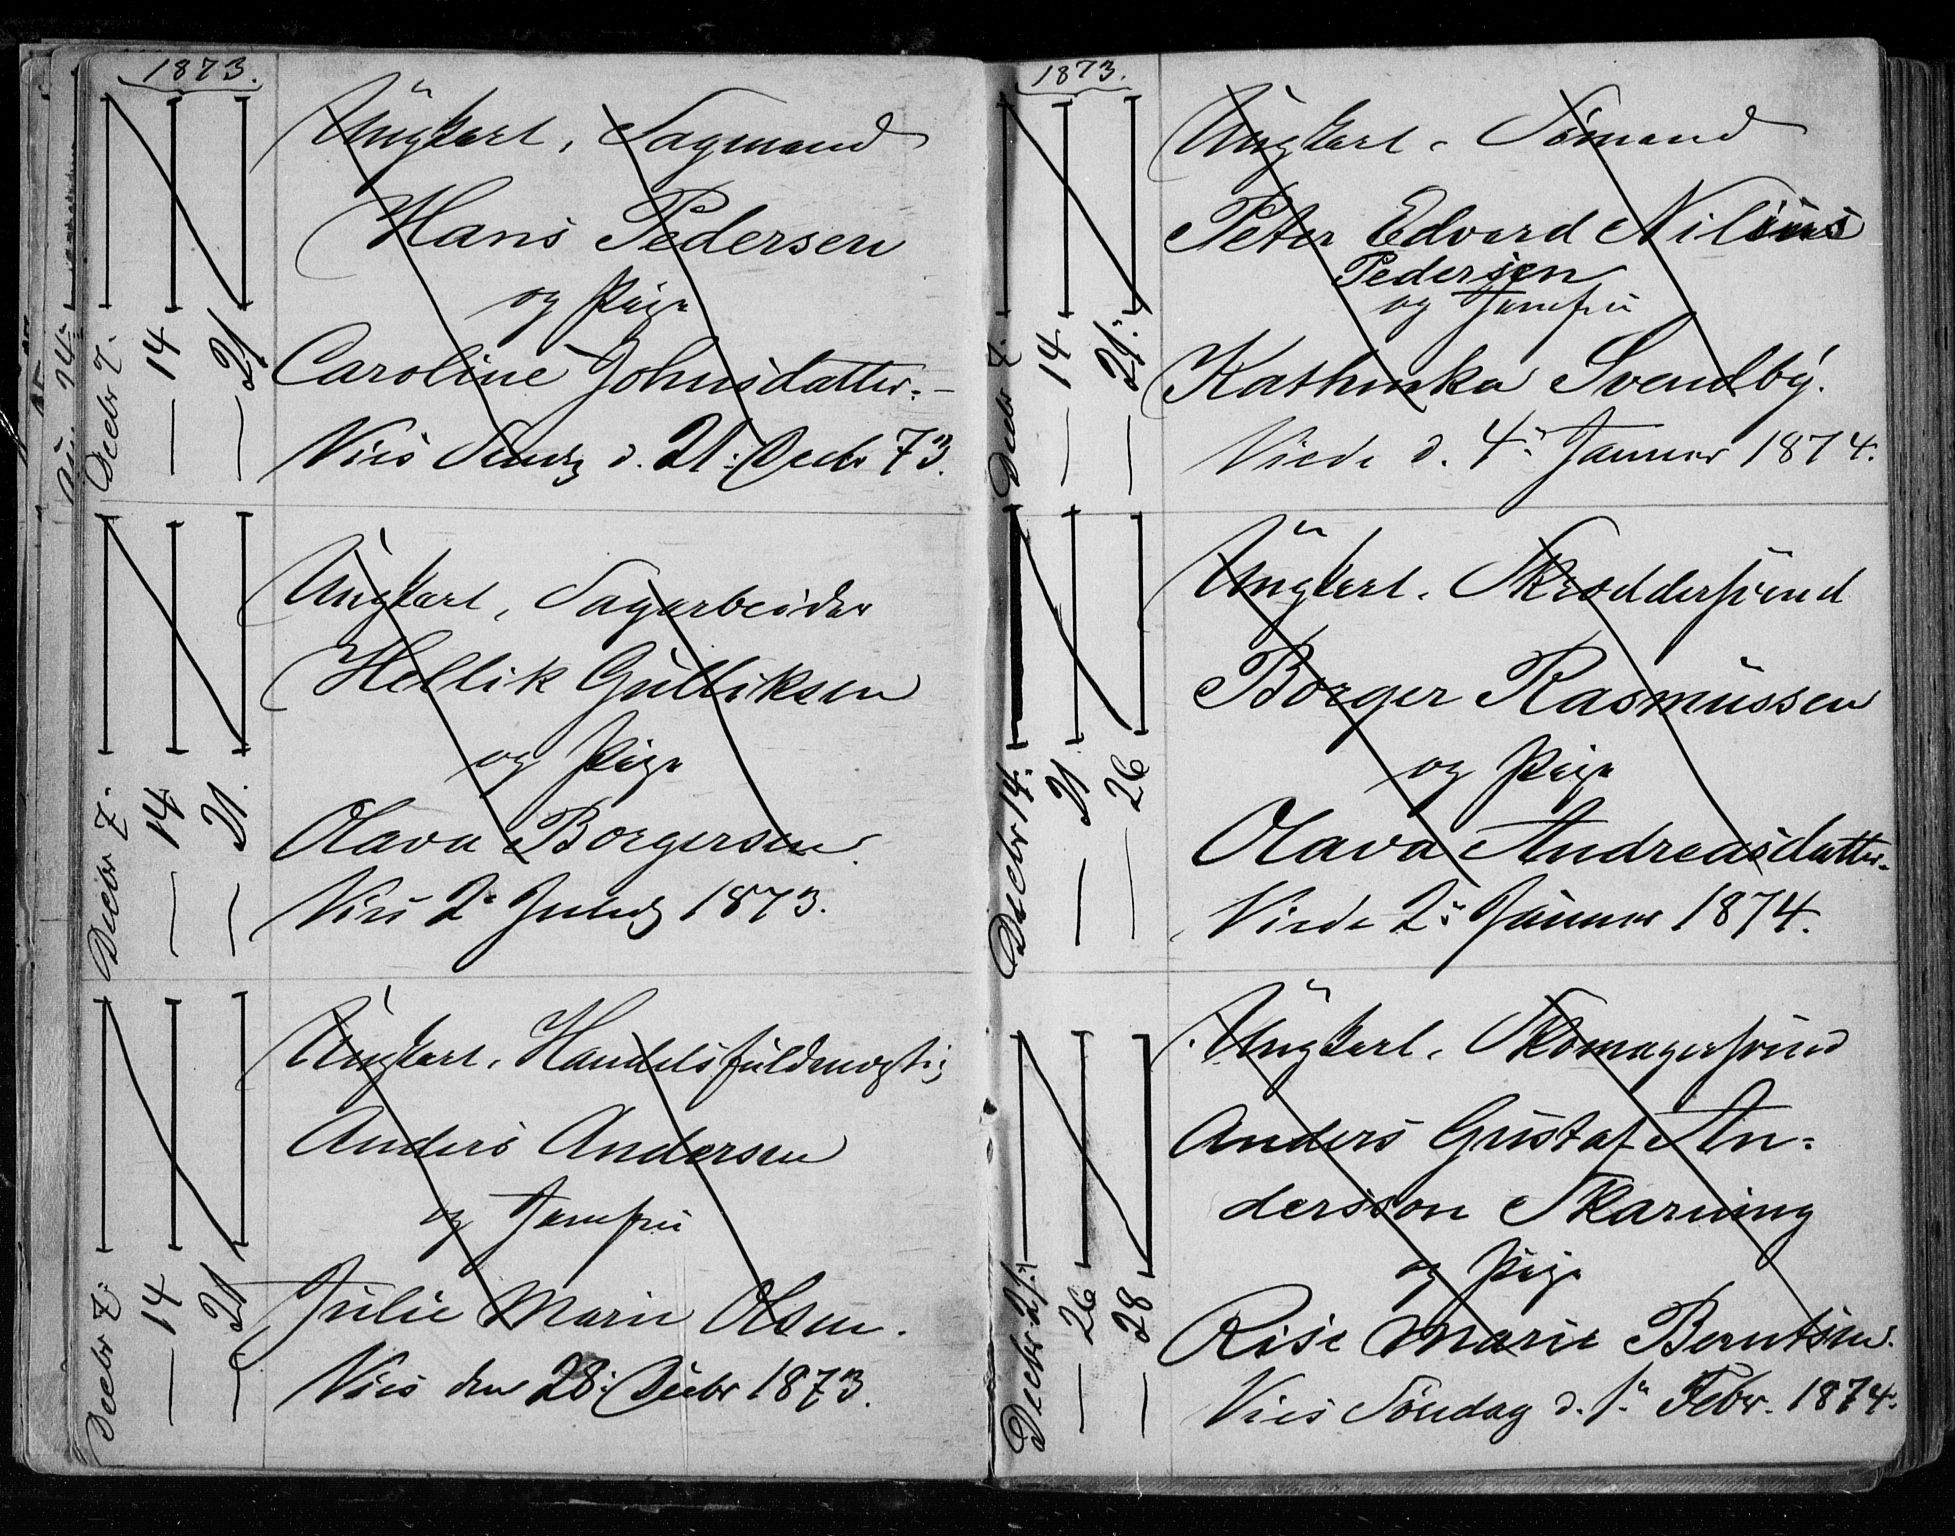 1873.
Decbr 7. — 14 — 21
Ungkarl, Sagmand
Hans Pedersen
og Pige
Caroline Johnsdatter. —
Vies Søndg d. 21. Decbr 73.
Decbr 7. — 14 — 21.
Ungkarl, Sagarbeider
Hellik Gulliksen
og Pige
Olava Borgersen.
Vies 2. Juledg 1873.
Decbr 7. — 14 — 21
Ungkarl, Handelsfuldmægtig
Anders Andersen
og Jomfru
Julie Marie Olsen.
Vies den 28. Decbr 1873.
1873.
Decbr 7. — 14 — 21.
Ungkarl. Sømand
Peter Edvard
Pedersen
og Jomfru
Kathinka Svendby.
Viede d. 4. Januar 1874.
Decbr 14. — 21. — 26
Ungkarl. Skræddersvend
Borger Rasmussen
og Pige
Olava Andreasdatter.
Viede 2. Januar 1874.
Decbr 21. — 26 — 28
Ungkarl. Skomagersvend
Anders Gustaf An=
dersson Skarning
og Pige
Rise Marie Berntsen.
Vies Søndag d. 1. Febr. 1874.